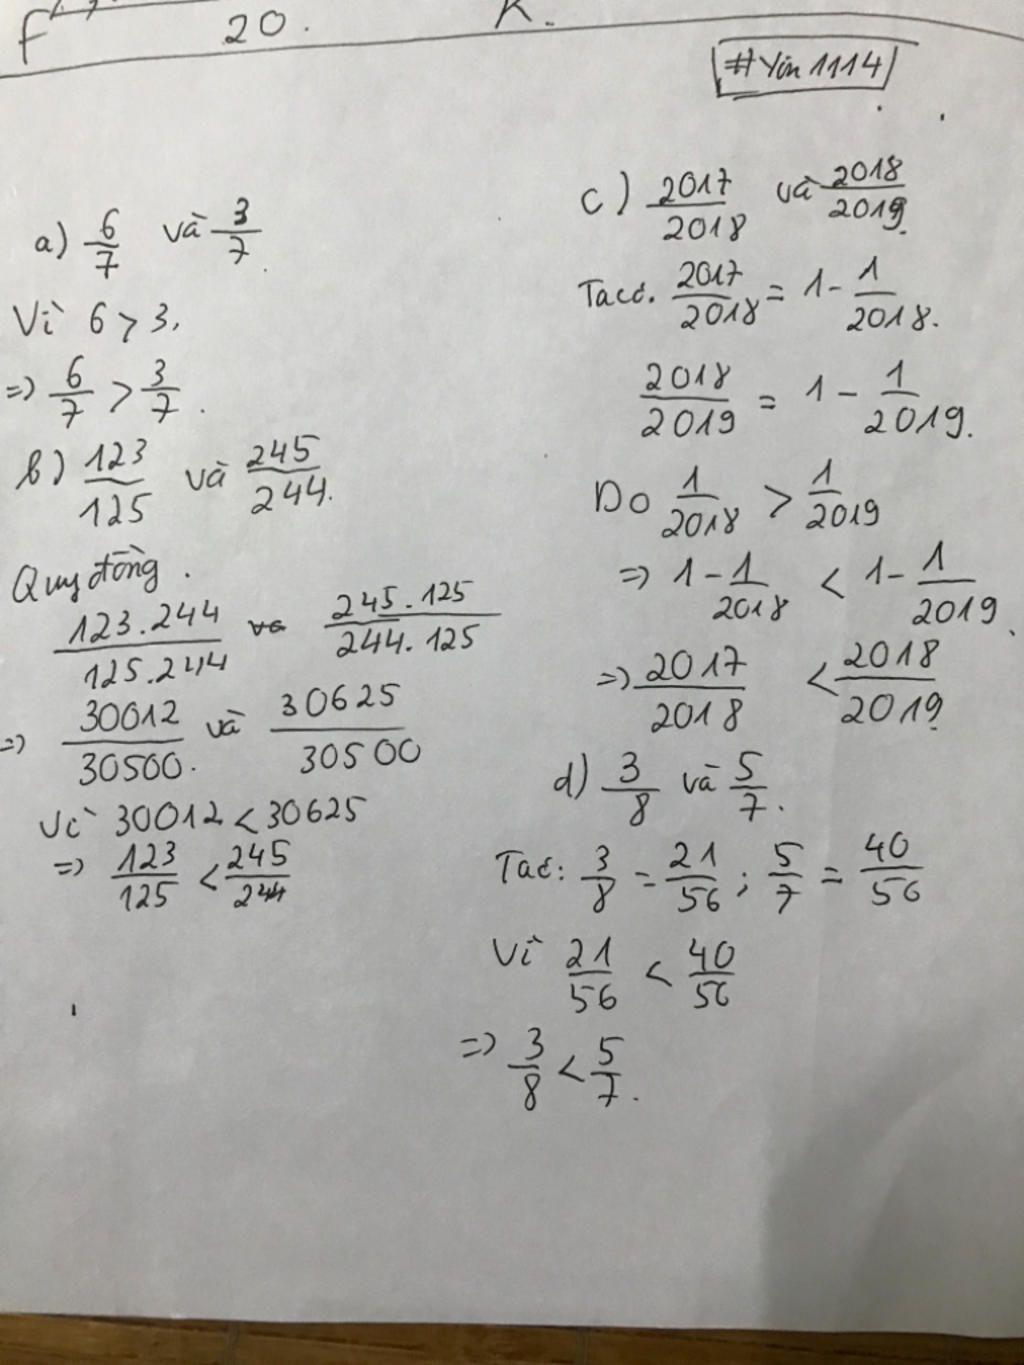 20. K.
#Yin 1114
a) 6/7 và 3/7.
Vì 6 > 3,
=> 6/7 > 3/7.
b) 123/125 và 245/244.
Quy đồng.
123.244/125.244 và 245.125/244.125
=> 30012/30500. và 30625/30500
Vì 30012 < 30625
=> 123/125 < 245/244
c) 2017/2018 và 2018/2019.
Ta có. 2017/2018 = 1 - 1/2018.
2018/2019 = 1 - 1/2019.
Do 1/2018 > 1/2019
=> 1 - 1/2018 < 1 - 1/2019.
=> 2017/2018 < 2018/2019.
d) 3/8 và 5/7.
Ta có: 3/8 = 21/56 ; 5/7 = 40/56
Vì 21/56 < 40/56
=> 3/8 < 5/7.